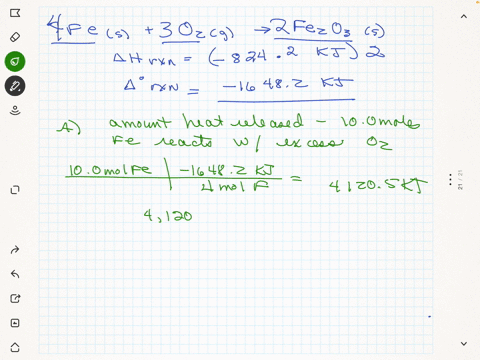 4Fe(s) + 3O2(g) → 2Fe2O3(s)
ΔH rxn = (-824.2 KJ) 2
Δ° rxn = -1648.2 KJ
A) amount heat released - 10.0 moles
Fe reacts w/ excess O2
10.0 mol Fe | -1648.2 KJ
4 mol F = 4,120.5 KJ
4,120
21 / 21